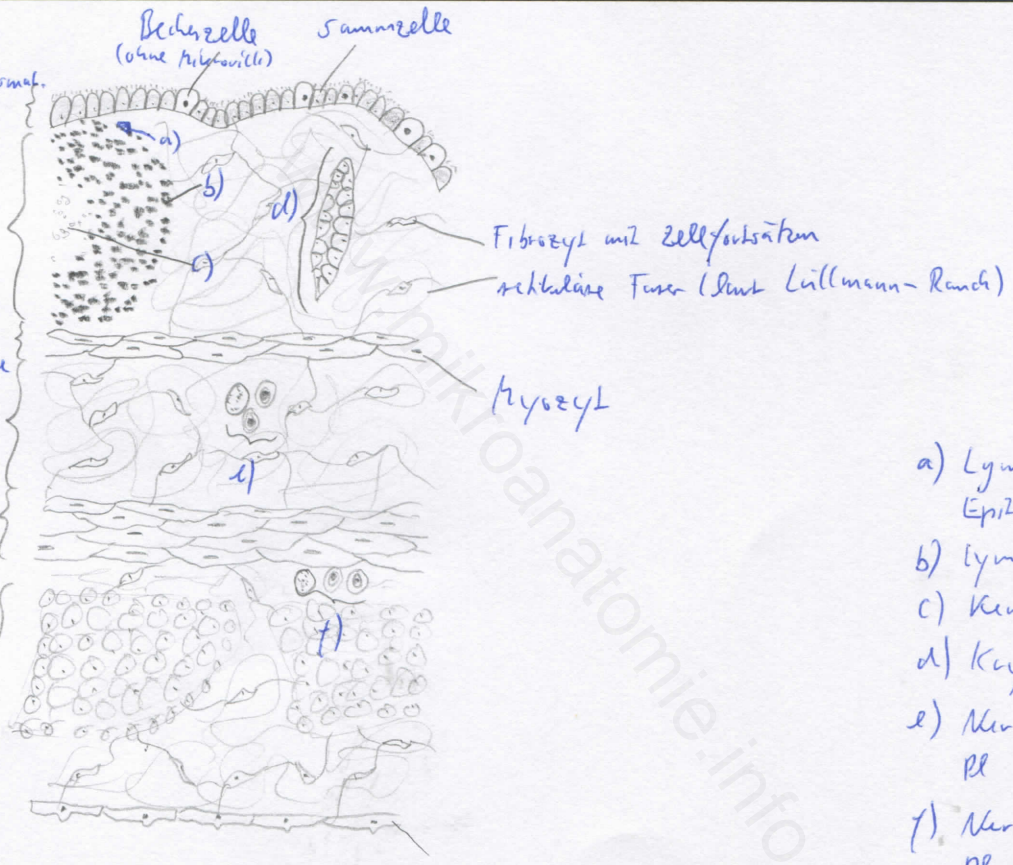 Becherzelle
(ohne Mikrovilli)
Saumzelle
a)
b)
c)
d)
Fibrozyt mit Zellfortsätzen
retikuläre Faser (laut Lüllmann-Rauch)
Myozyt
e)
f)
a) Ly
Epit
b) Ly
c) Ke
d)
e) Ner
Pl
f) Ner
Pl
www.mikroanatomie.info